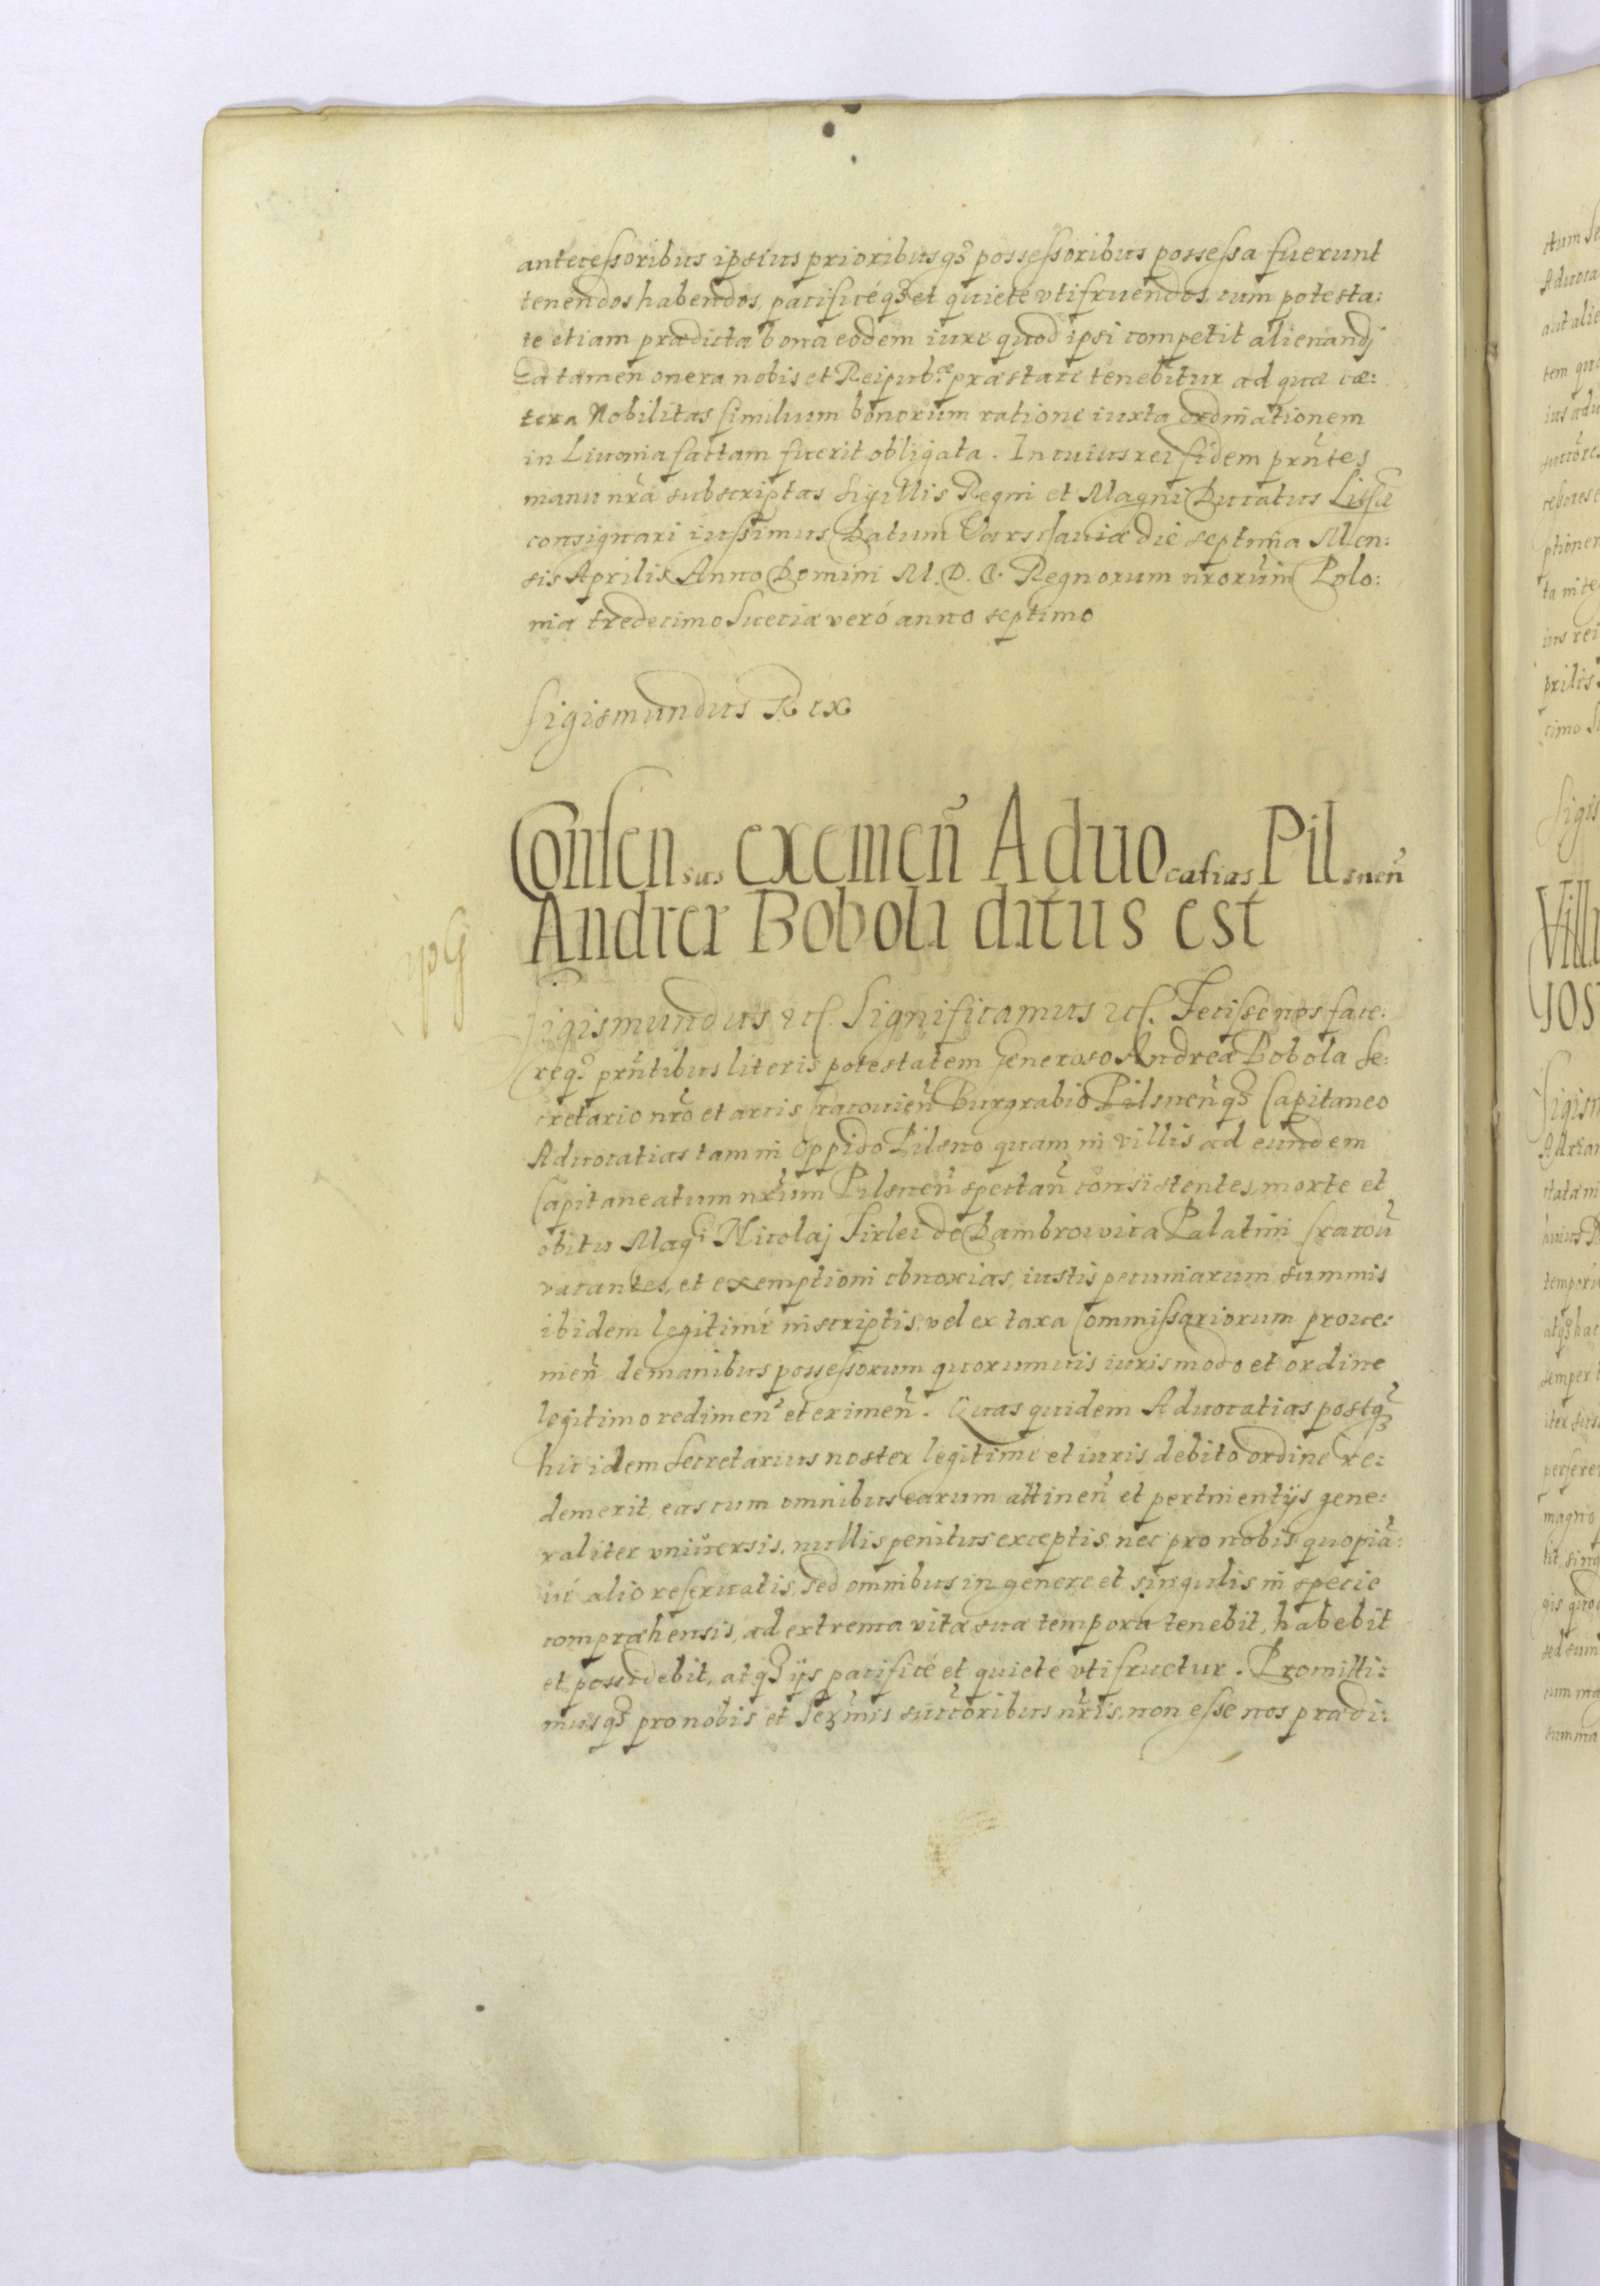 antecessoribus ipsius prioribusq₃ possessoribus possessa fuerunt
tenendos habendos, pacificéq₃ et quieté vtifruendos, cum potesta:
te etiam prædicta bona eodem iure quod ipsi competit alienandj
Ea tamen onera nobis et Reipub:cæ præstare tenebitur ad quæ cæ:
tera Nobilitas similium bonorum ratione iuxta ordinationem
in Liuonia factam fuerit obligata. In cuius rei fidem prñtes
manu nr̃a subscriptas Sigillis Regni et Magni Ducatus
consignari iussimus, Datum Varschauiæ die septima Men:
sis Aprilis Anno Domini M. D. C. Regnorum nrorũm Polo:
niæ tredecimo Sueciæ veró anno septimo
Sigismundus Rex
Consensus eximeñ Aduocatias Pilsneñ
Andreæ Boboli ditus est
Sigismundus etc. Significamus etc. Fecisse nos face:
req₃ prñtibus literis potestatem Generoso Andreæ Bobola Se:
cretario nr̃o et arcis Cracouieñ Burgrabio Pilsneñq₃ Capitaneo
Aduocatias tam in Oppido Pilsno quam in villis ad eundem
Capitaneatum nr̃um Pilsneñ spectañ consistentes, morte et
obitu Mag:ci Nicolaj Firlei de Dambrowica Palatini Cracoũ
vacantes, et exemptioni obnoxias, iustis pecuniarum summis
ibidem legitimé inscriptis, vel ex taxa Commissariorum proue:
nieñ de manibus possessorum quorumuis iuris modo et ordine
legitimo redimeñ et eximeñ. Quas quidem Aduocatias postq̃₃
hic idem Secretarius noster legitime et iuris debito ordine re:
demerit, eas cum omnibus earum attineñ et pertinentijs gene:
raliter vniuersis, nullis penitus exceptis, nec pro nobis quopiã:
ué alio reseruatis, sed omnibus in genere et singulis in specie
compræhensis, ad extrema vitæ suæ tempora tenebit, habebit
et possidebit, atq₃ ijs pacificé et quieté vtifruetur. Promitti:
musq₃ pro nobis et Serm̃is succ̃oribus nr̃is, non esse nos prædi: